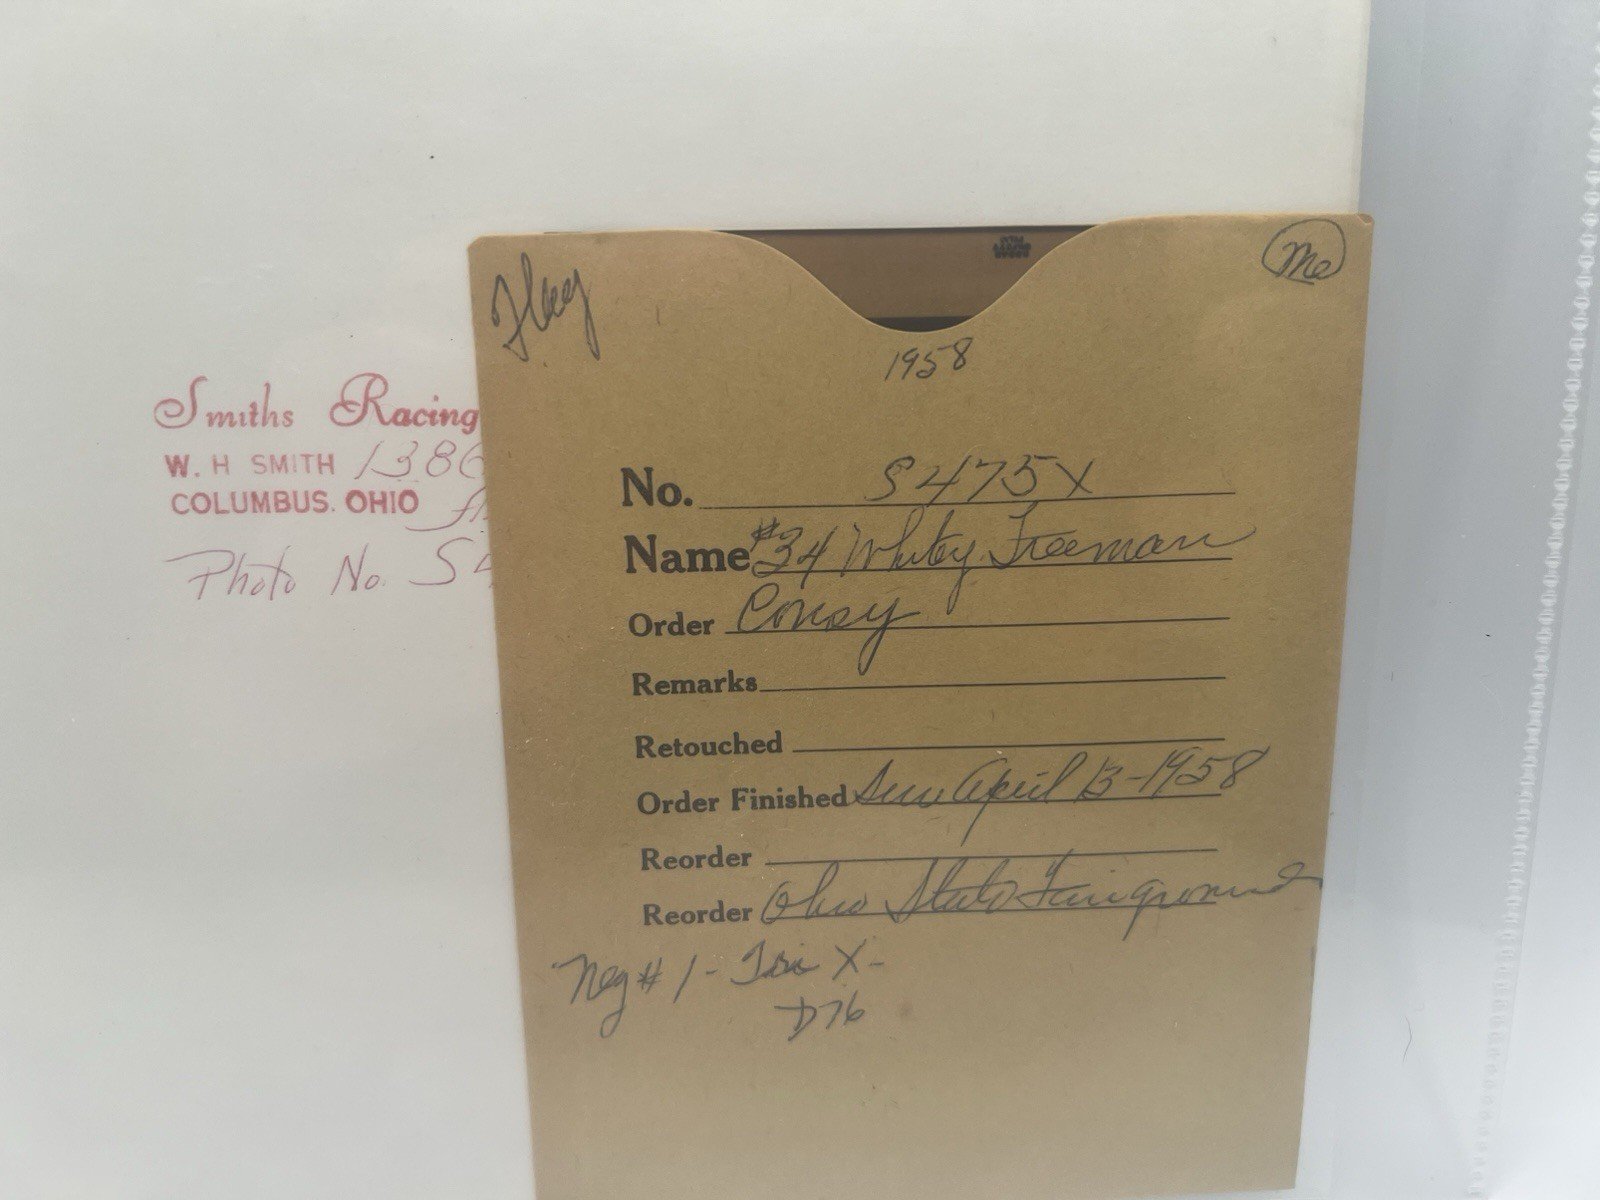 Smiths Racing
W. H SMITH 1386
COLUMBUS. OHIO
Photo No. S4
Me
1958
No. S475X
Name #34 Whitey Freeman
Order
Remarks
Retouched
Order Finished Sun April 13-1958
Reorder
Reorder Ohio State Fairground
Neg # 1- Tri X-
D76